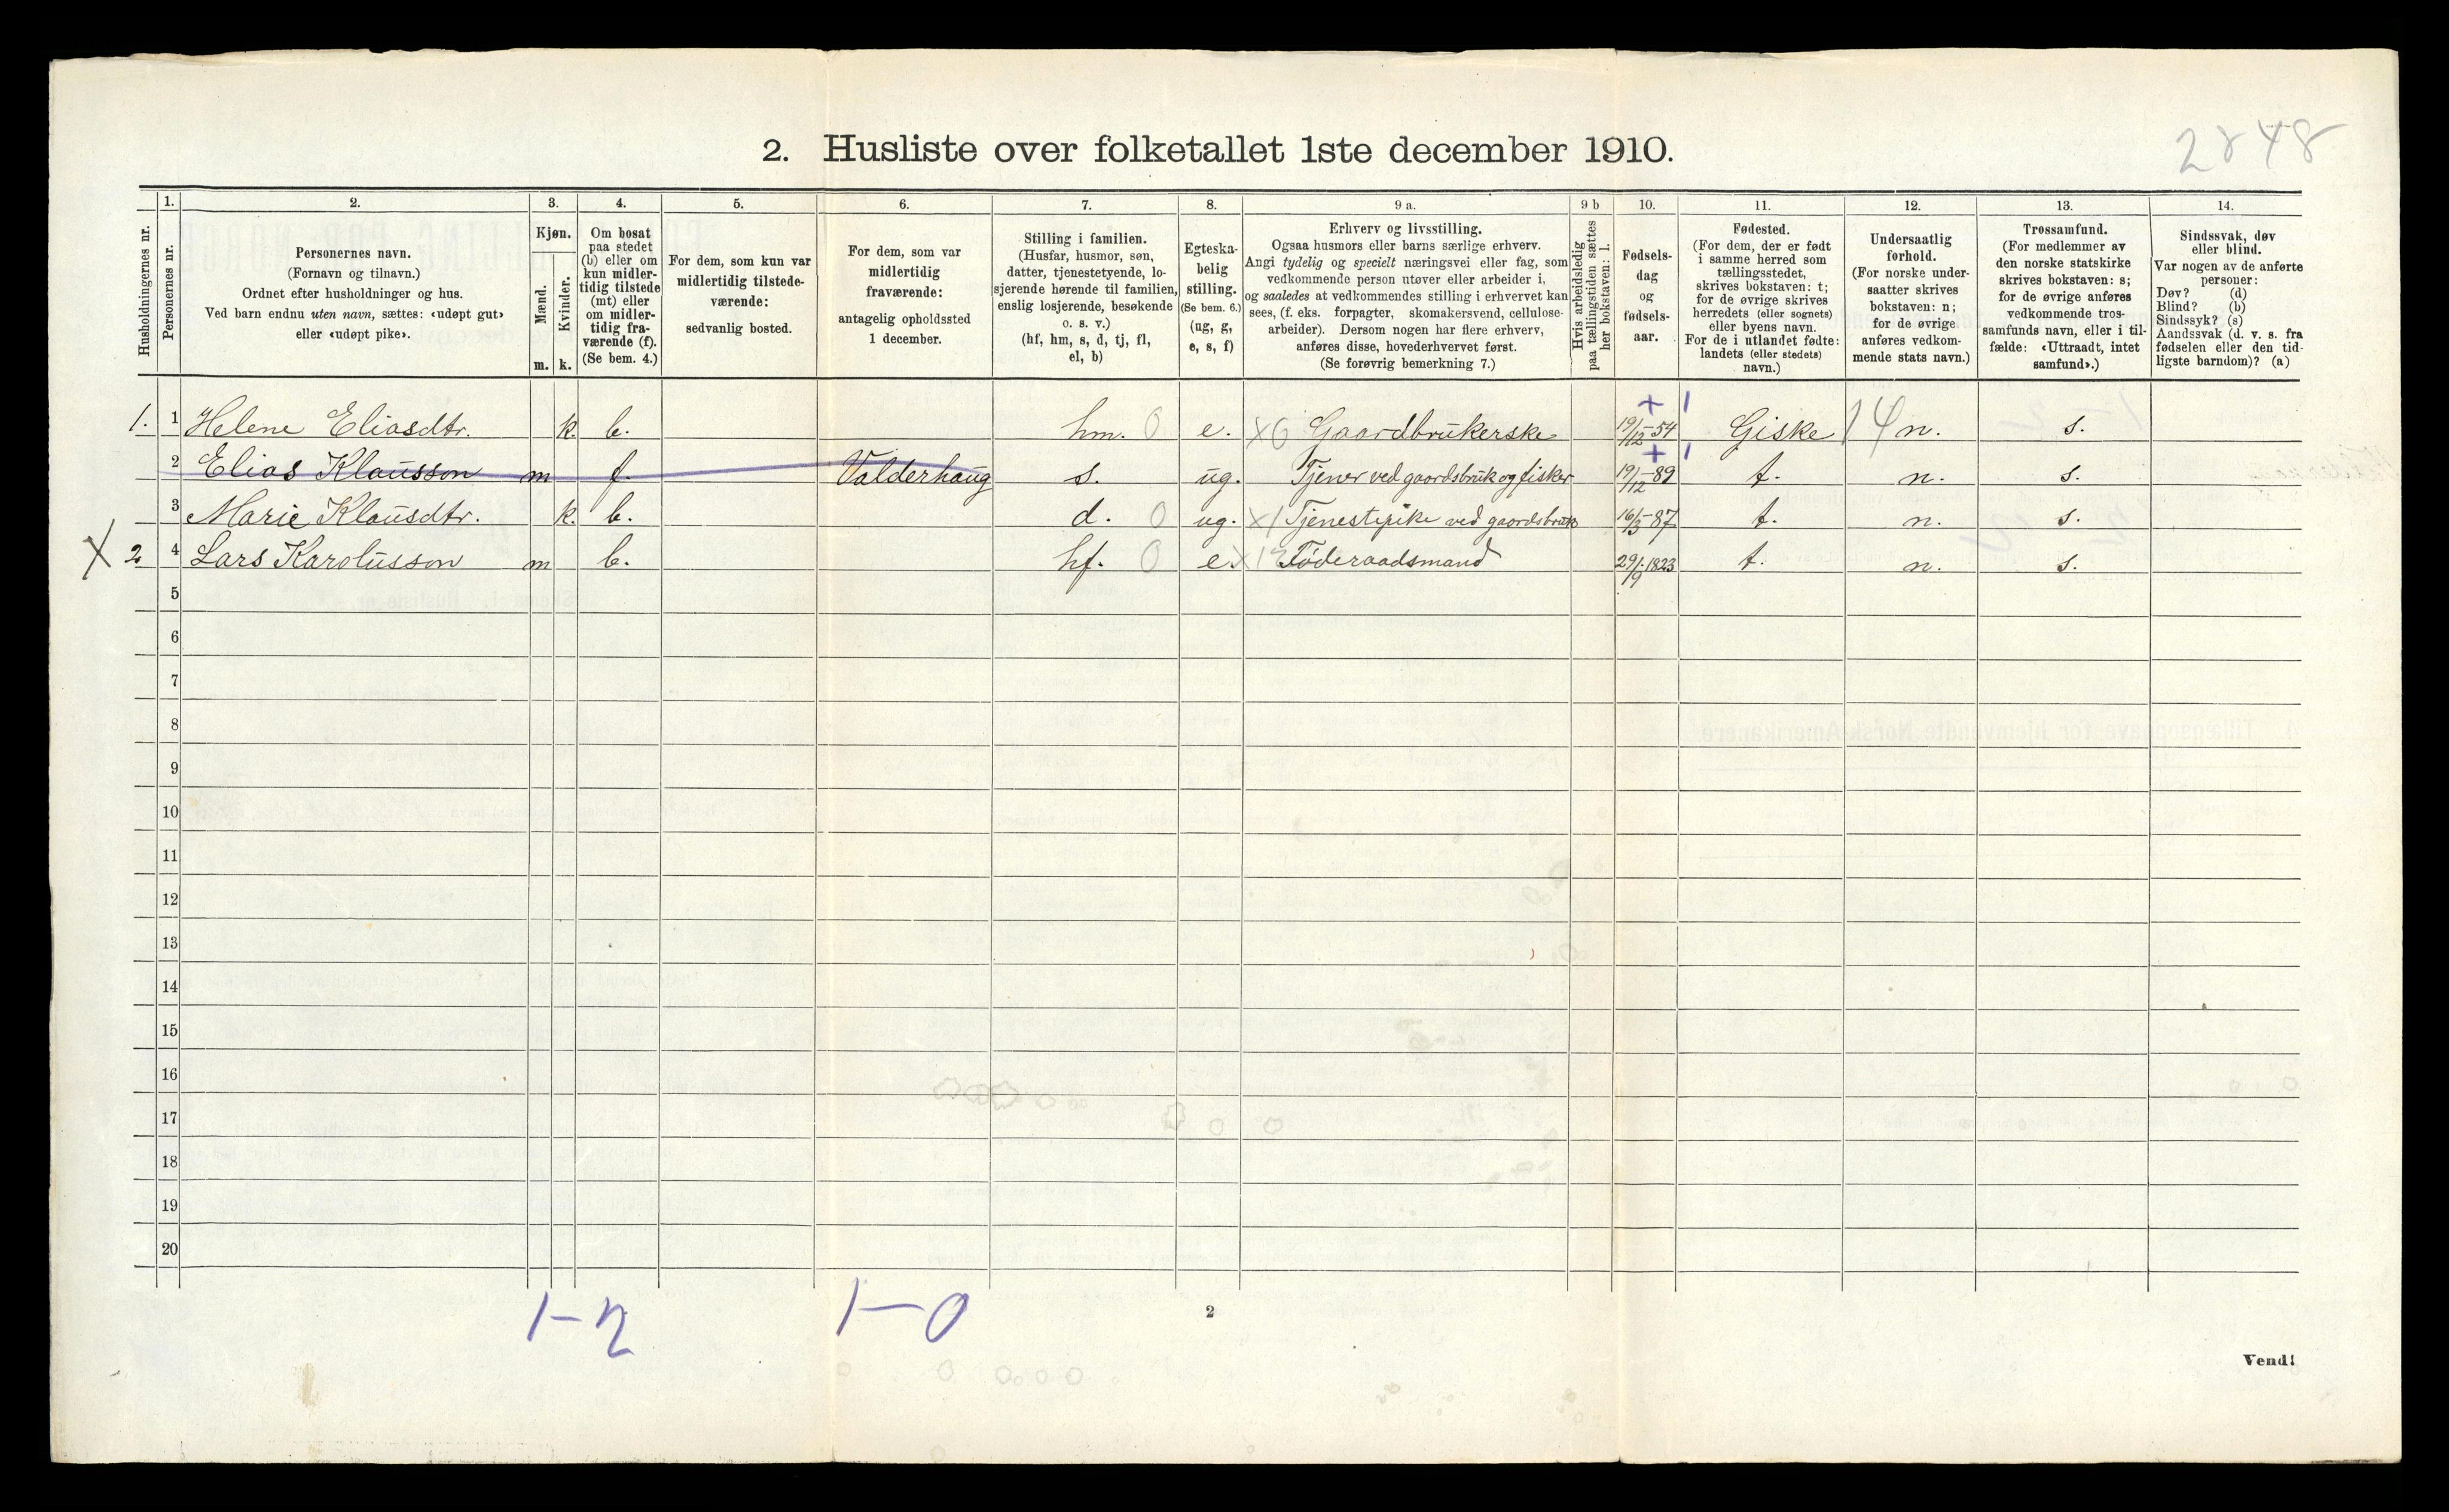 2. Husliste over folketallet 1ste december 1910.
2848
Husholdningernes nr.
1.
Personernes nr.
2.
Personernes navn.
(Fornavn og tilnavn.)
Ordnet efter husholdninger og hus.
Ved barn endnu uten navn, sættes: «udøpt gut»
eller «udøpt pike».
3.
Kjøn.
Mænd.
Kvinder.
m. k.
4.
Om bosat
paa stedet
(b) eller om
kun midler-
tidig tilstede
(mt) eller
om midler-
tidig fra-
værende (f).
(Se bem. 4.)
5.
For dem, som kun var
midlertidig tilstede-
værende:
sedvanlig bosted.
6.
For dem, som var
midlertidig
fraværende:
antagelig opholdssted
1 december.
7.
Stilling i familien.
(Husfar, husmor, søn,
datter, tjenestetyende, lo-
sjerende hørende til familien,
enslig losjerende, besøkende
o. s. v.)
(hf, hm, s, d, tj, fl,
el, b)
8.
Egteska-
belig
stilling.
(Se bem. 6.)
(ug, g,
e, s, f)
9 a.
Erhverv og livsstilling.
Ogsaa husmors eller barns særlige erhverv.
Angi tydelig og specielt næringsvei eller fag, som
vedkommende person utøver eller arbeider i,
og saaledes at vedkommendes stilling i erhvervet kan
sees, (f. eks. forpagter, skomakersvend, cellulose-
arbeider). Dersom nogen har flere erhverv,
anføres disse, hovederhvervet først.
(Se forøvrig bemerkning 7.)
9 b
Hvis arbeidsledig
paa tællingstiden sættes
her bokstaven: l.
10.
Fødsels-
dag
og
fødsels-
aar.
11.
Fødested.
(For dem, der er født
i samme herred som
tællingsstedet,
skrives bokstaven: t;
for de øvrige skrives
herredets (eller sognets)
eller byens navn.
For de i utlandet fødte:
landets (eller stedets)
navn.)
12.
Undersaatlig
forhold.
(For norske under-
saatter skrives
bokstaven: n;
for de øvrige
anføres vedkom-
mende stats navn.)
13.
Trossamfund.
(For medlemmer av
den norske statskirke
skrives bokstaven: s;
for de øvrige anføres
vedkommende tros-
samfunds navn, eller i til-
fælde: «Uttraadt, intet
samfund».)
14.
Sindssvak, døv
eller blind.
Var nogen av de anførte
personer:
Døv? (d)
Blind? (b)
Sindssyk? (s)
Aandssvak (d. v. s. fra
fødselen eller den tid-
ligste barndom)? (a)
+ 1
1. 1 Helene Eliasdtr. k. b. hm. 0 e. X6 Gaardbrukerske 19/12-54 Giske 14 n. s.
+ 1
2 Elias Klausson m f Valderhaug s. ug. Tjener ved gaardsbruk og fisker 19/12-89 t. n. s.
3 Marie Klausdtr. k. b. d. 0 ug. X1 Tjenestepike ved gaardsbruk 16/3-87 t. n. s.
X 2 4 Lars Karolusson m b. hf. 0 e. X 12 Føderaadsmand 29/9-1823 t. n. s.
5
6
7
8
9
10
11
12
13
14
15
16
17
18
19
20
1-2 1-0
2
Vend!